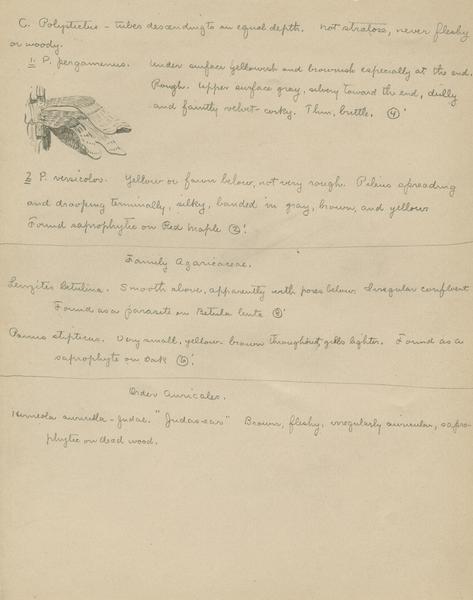 C. Polystictus - tubes descending to an equal depth. Not stratose, never fleshy
or woody.
1. P. pergamenus. Under surface yellowish and brownish especially at the end.
Rough. Upper surface gray, silvery toward the end, dully
and faintly velvet-corky. Thin, brittle. (4)!
2 P. versicolor. Yellow or fawn below, not very rough. Pileus spreading
and drooping terminally, silky, banded in gray, brown, and yellow.
Found saprophytic on Red Maple (3)!
Family Agaricaceae.
Lenzites betulina. Smooth above, apparently with pores below. Irregular confluent
Found as a parasite on Betula lenta (8)!
Panus stipticus. Very small, yellow brown throughout, gills lighter. Found as a
saprophyte on Oak (6)!
Order Auricales.
Hirneola auricula-judae. "Judas-ears" Brown, fleshy, irregularly auricular, sapro-
phytic on dead wood.